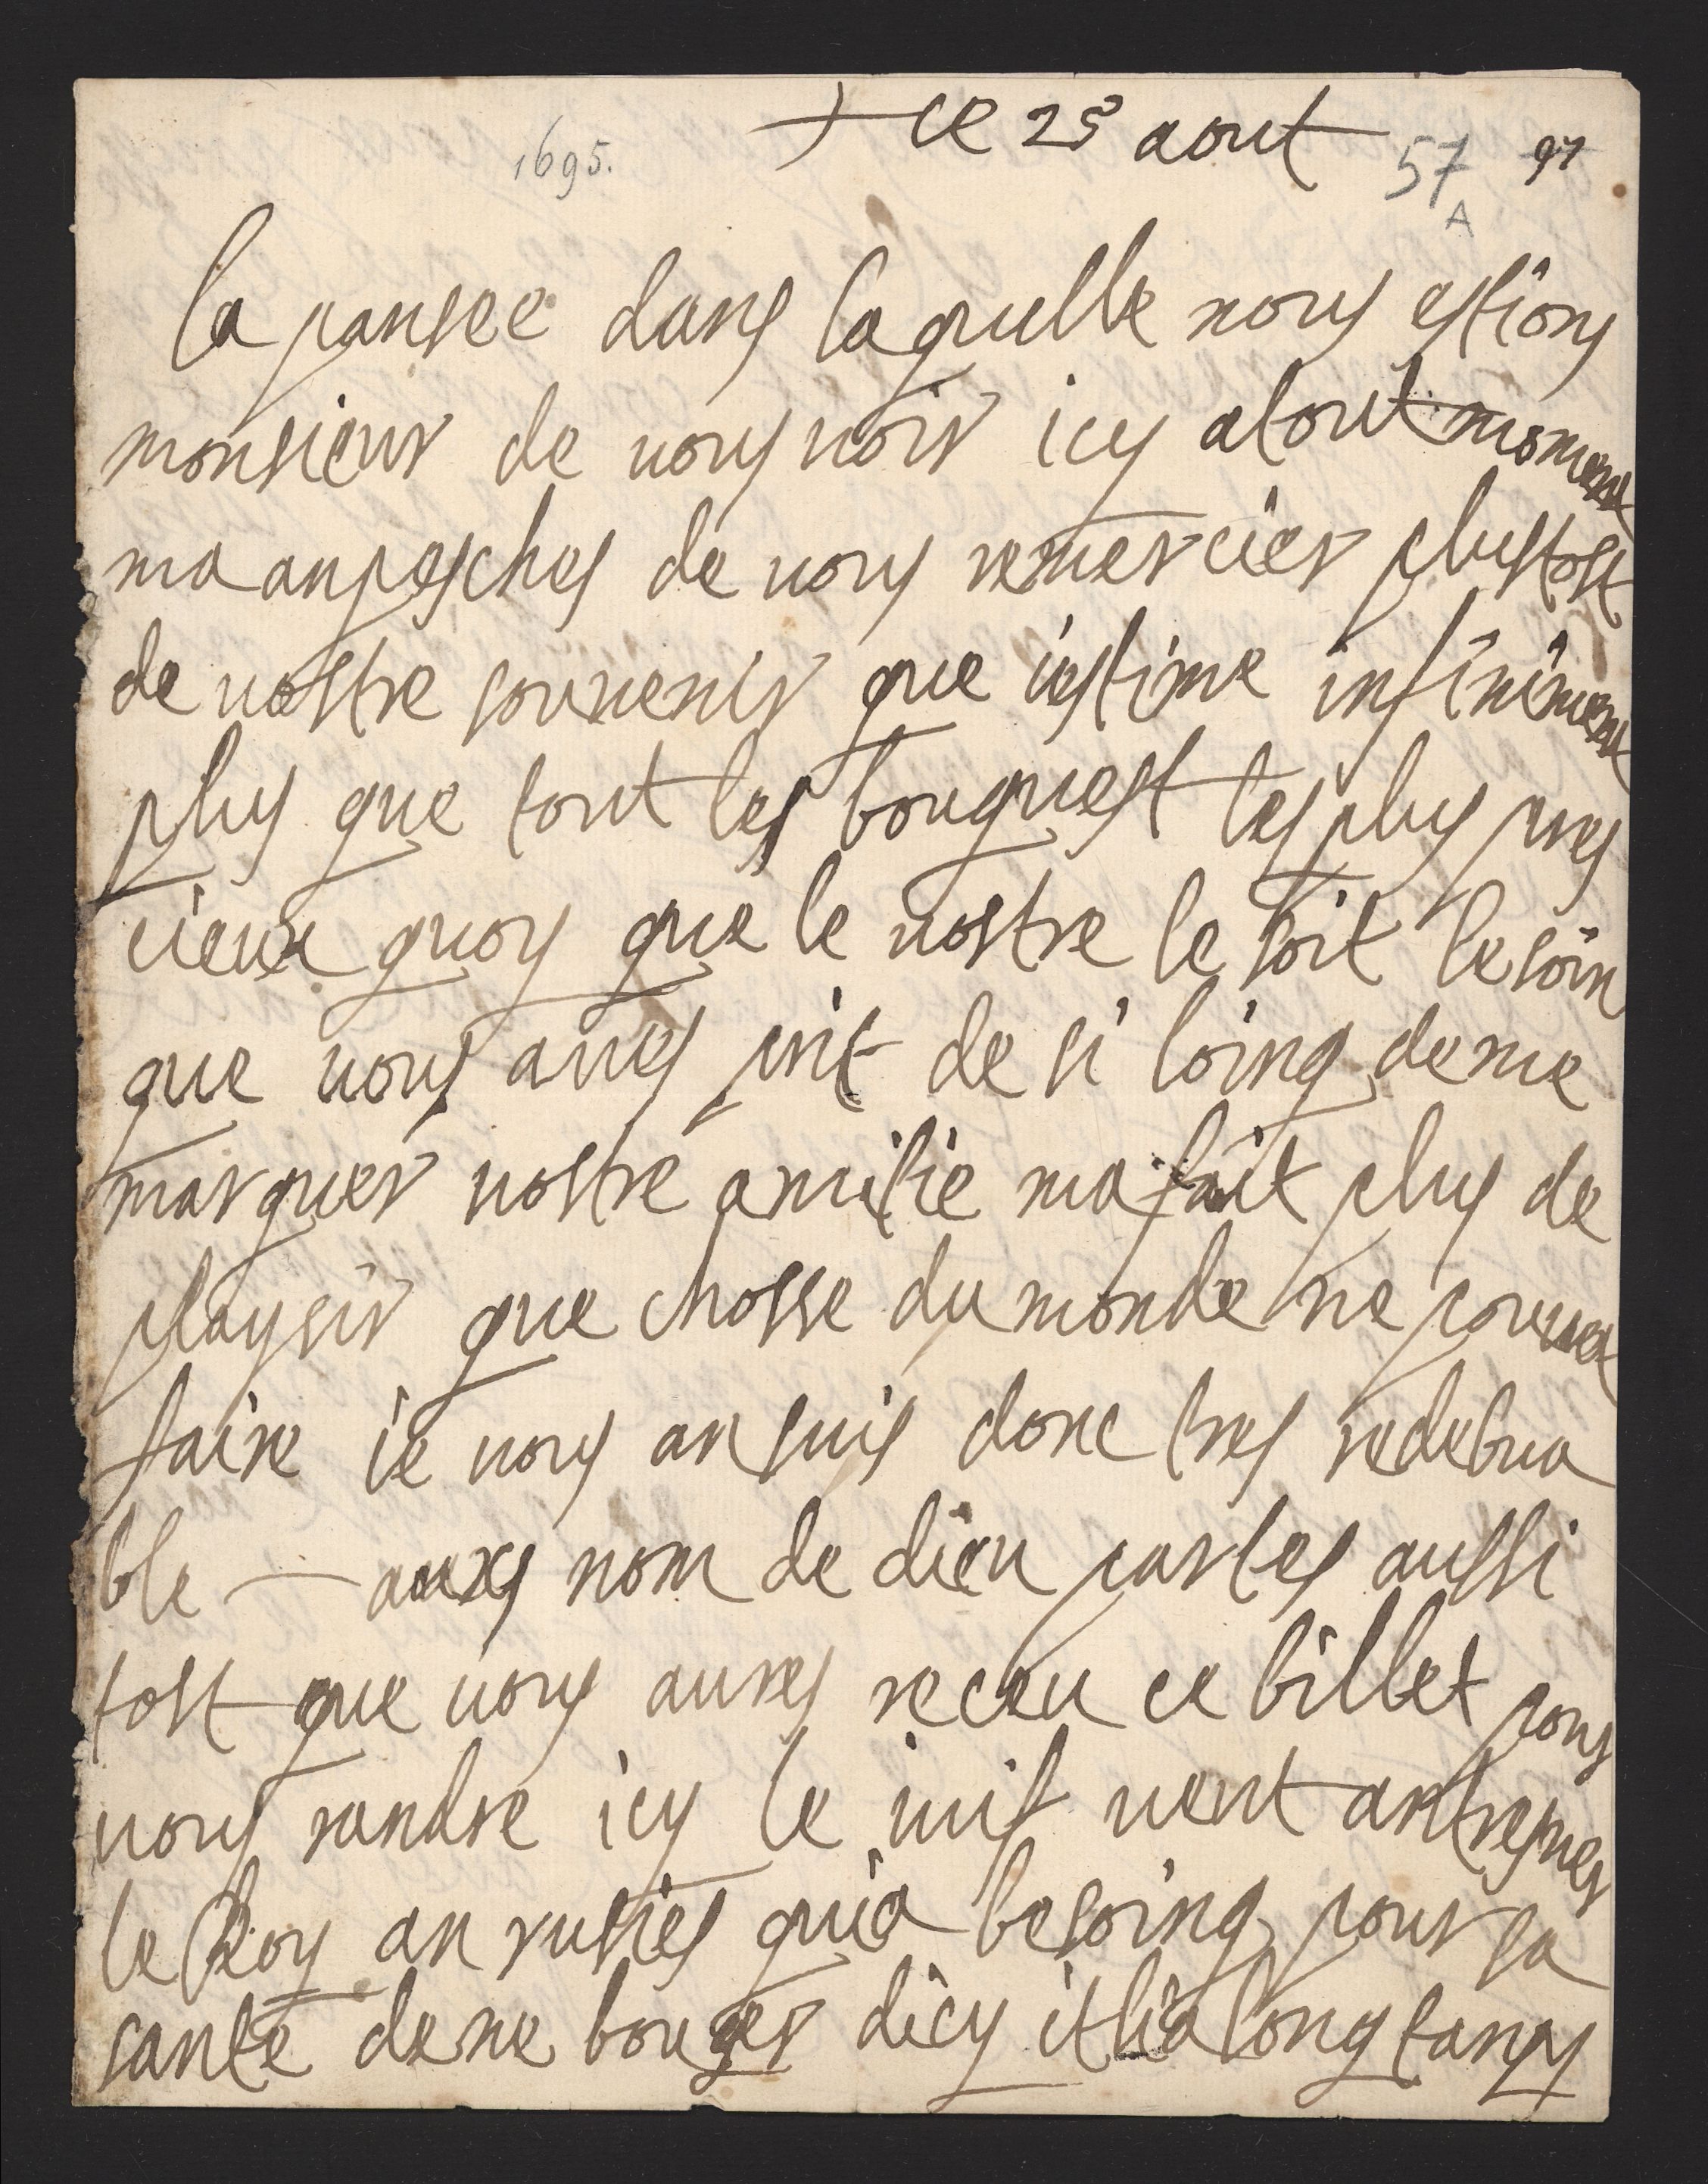 1695.
+ ce 25 aout
57 97
A
la pansee dans laquelle nous estions
monsieur de vous voir icy a tout moment
ma anpesches de vous remercier plustost
de vostre souvenir que iestime infiniment
plus que tout les bouquest les plus pres
cieux quoy que le vostre le soit le soin
que vous aves prit de si loing de me
marquer vostre amitie ma fait plus de
playsir que chosse du monde ne pouvet
faire ie vous an suis donc tres redebua
ble — auxs nom de dieu partes aussi
tost que vous aures receu ce billet pour
vous randre icy le iuif veut
le Roy an qui a besoing pour sa
sante de ne bouger dicy it lia long tamps